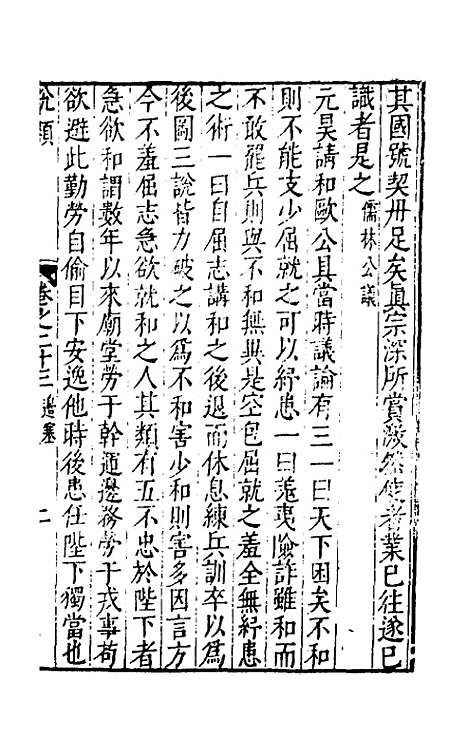 其國號契丹足矣眞宗深所賞激然使者業已往遂已
識者是之儒林公議
元昊請和歐公具當時議論有三一曰天下困矣不和
則不能支少屈就之可以紓患一曰羗夷險詐雖和而
不敢罷兵則與不和無異是空包屈就之羞全無紓患
之術一曰自屈志講和之後退而休息練兵訓卒以爲
後圖三說皆力破之以爲不和害少和則害多因言方
今不羞屈志急欲就和之人其類有五不忠於陛下者
急欲和謂數年以來廟堂勞于幹運邊務勞于戎事苟
欲避此勤勞自偷目下安逸他時後患任陛下獨當也
說類
卷之二十三 邊塞
二